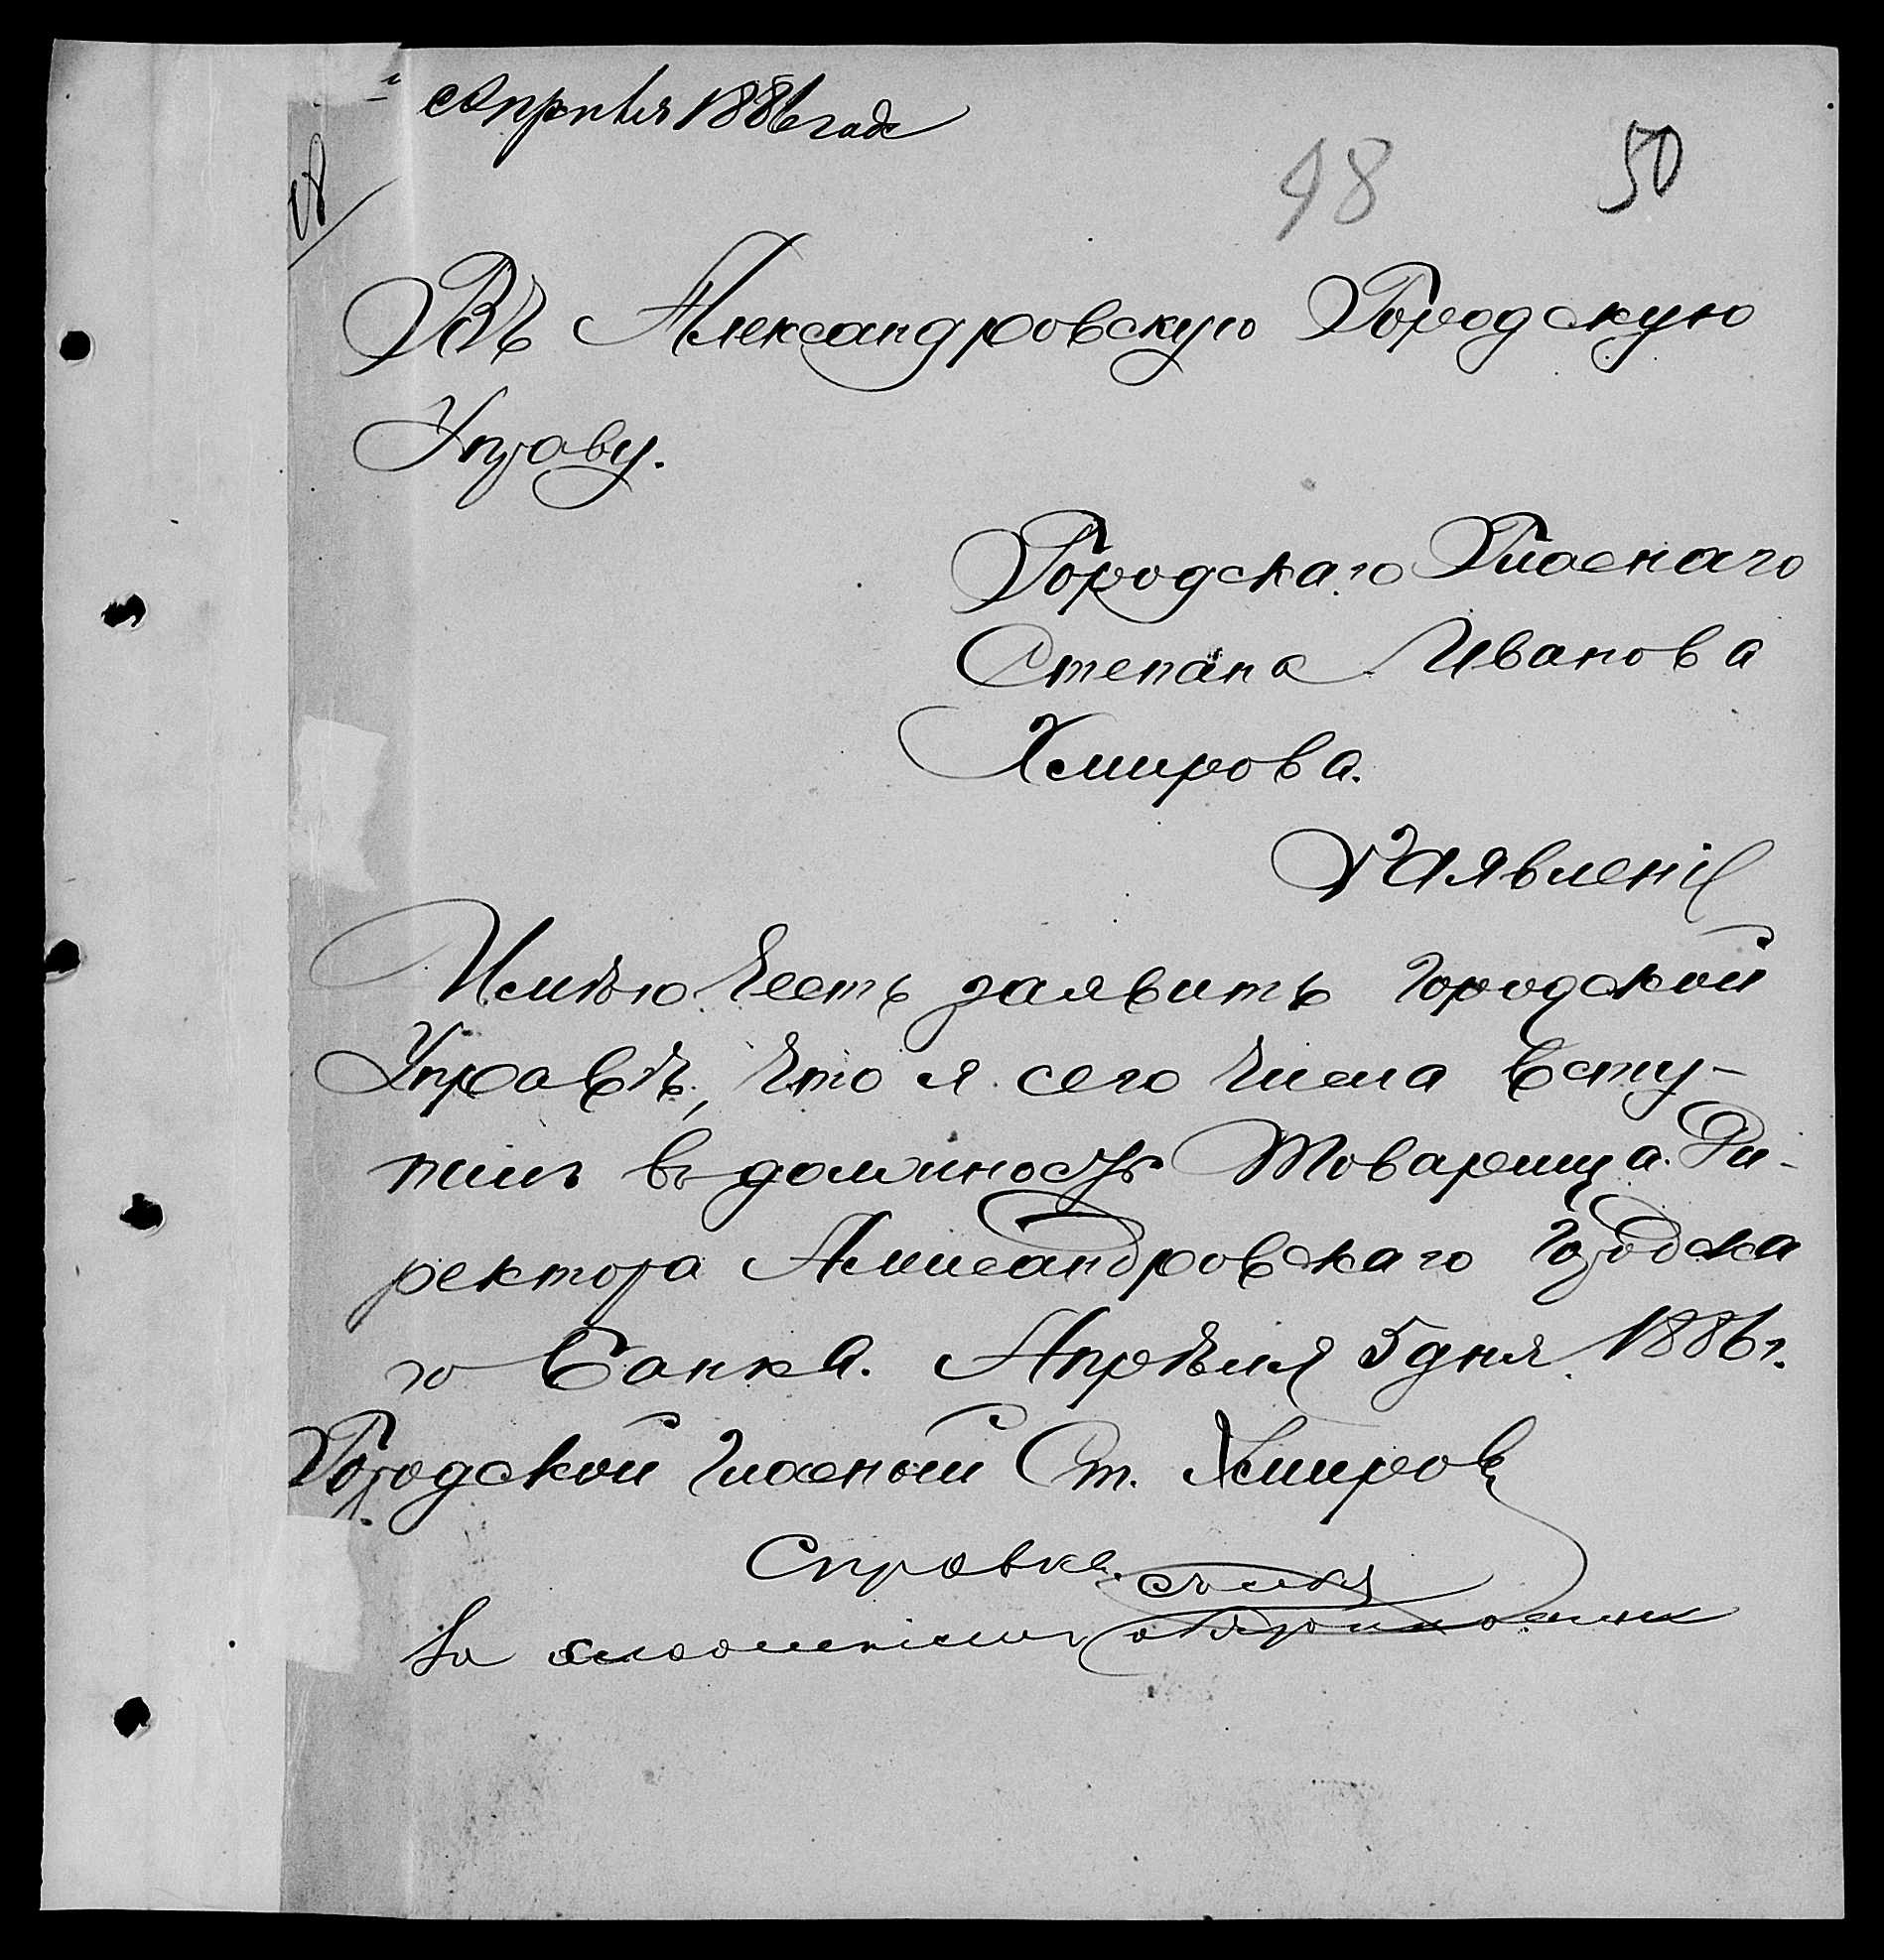 Апрѣля 1886 года
48 50
Въ Александровскую Городскую
Управу.
Городскаго Гласнаго
Степана Иванова
Хмирова.
Заявленіе
Имѣю честь заявить городской
Управѣ, что я сего числа всту-
пилъ въ должность Товарища Ди-
ректора Александровскаго городска
го Банка. Апрѣля 5 дня 1886 г.
Городской гласный Ст. Хмировъ
Справка.